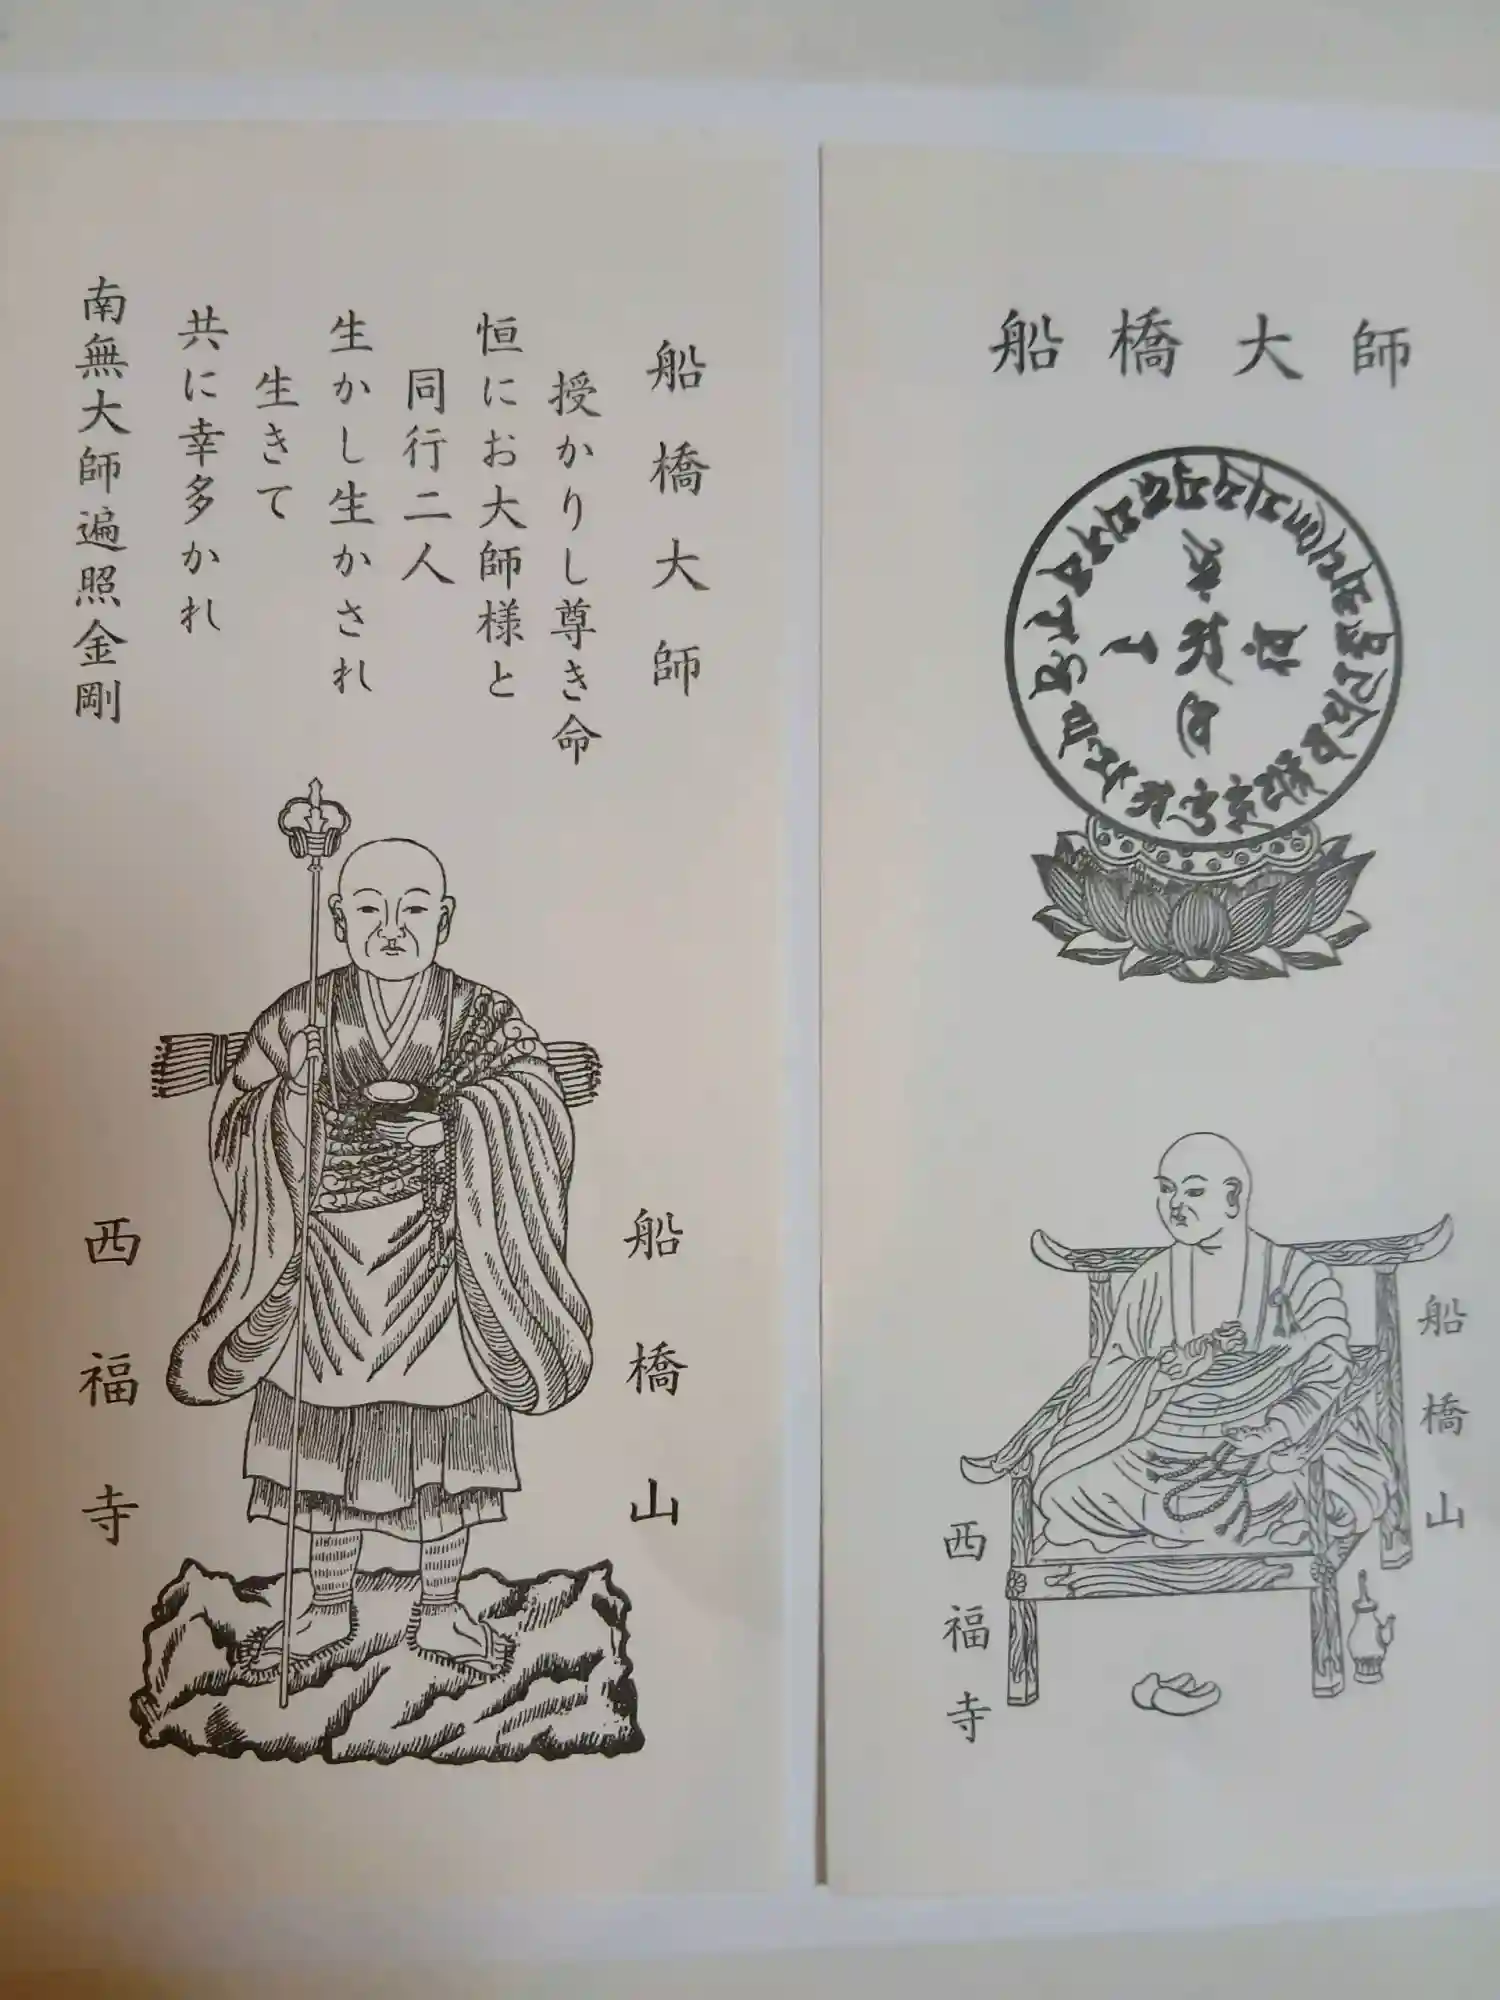 船橋大師
授かりし尊き命
恒にお大師様と
同行二人
生かし生かされ
生きて
共に幸多かれ
南無大師遍照金剛
船橋山
西福寺
船橋大師
船橋山
西福寺